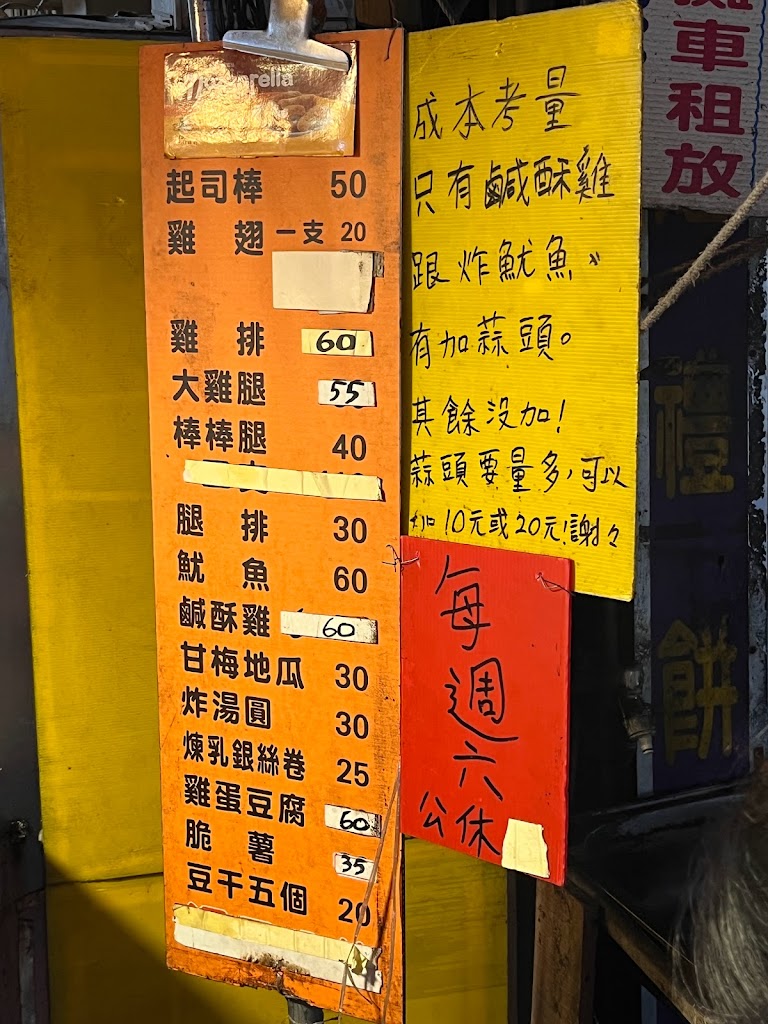 起司棒 50
雞翅 一支 20
雞排 60
大雞腿 55
棒棒腿 40
腿排 30
魷魚 60
鹹酥雞 60
甘梅地瓜 30
炸湯圓 30
煉乳銀絲卷 25
雞蛋豆腐 60
脆薯 35
豆干五個 20
成本考量
只有鹹酥雞
跟炸魷魚、
有加蒜頭。
其餘沒加!
蒜頭要量多,可以
加10元或20元!謝々
每週六
公休
車租放
禮
餅